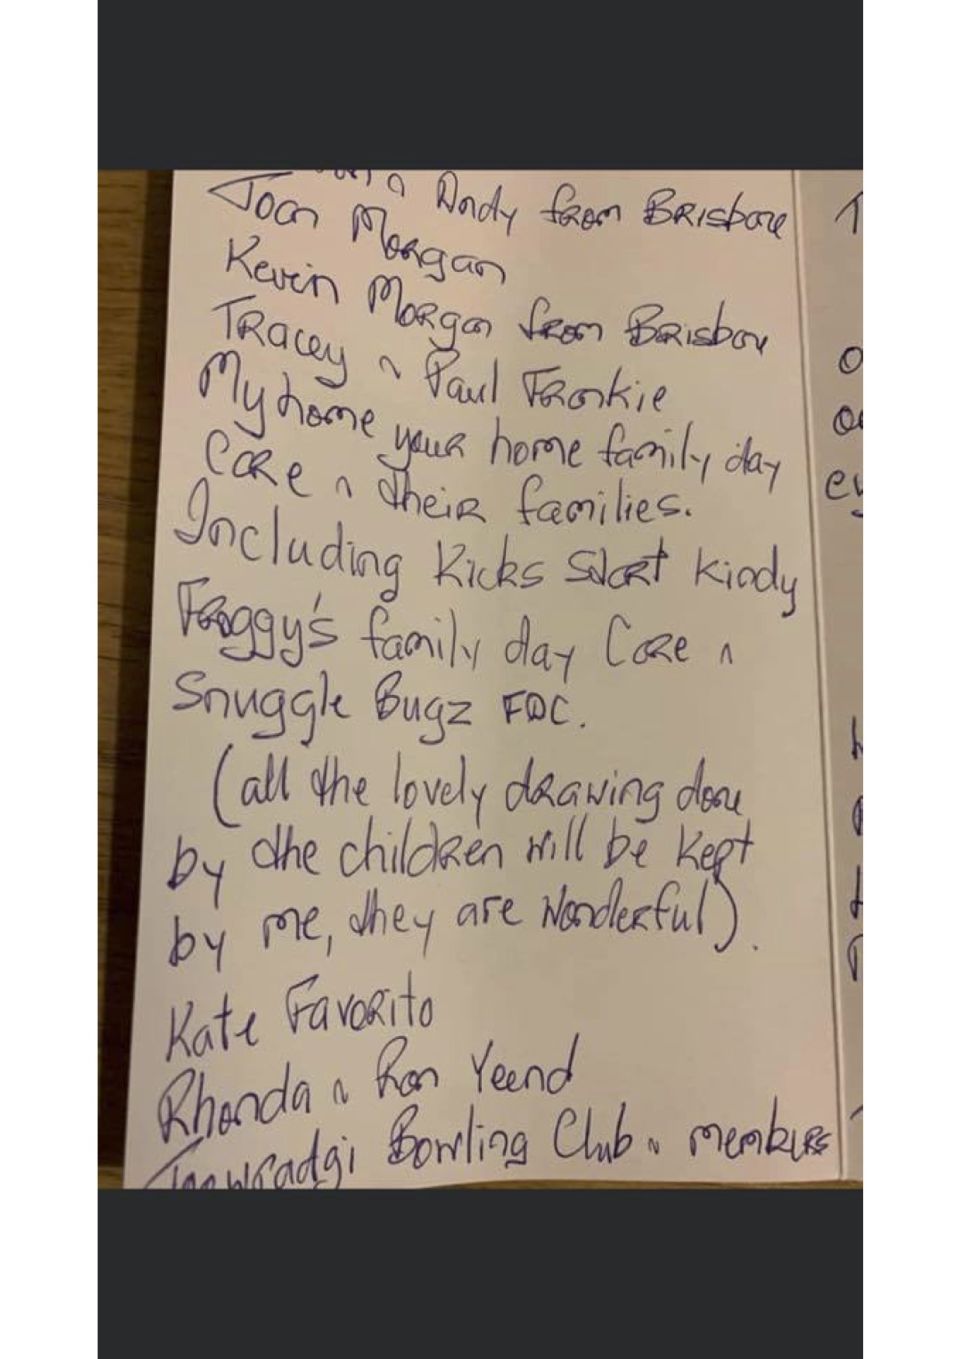 n Andy from Brisbane
Joan Morgan
Kevin Morgan from Brisbane
Tracey n Paul Frankie
My home your home family day
Care n their families.
Including Kicks Start Kindy
Froggy's family day Care n
Snuggle Bugz FDC.
(all the lovely drawing done
by the children will be kept
by me, they are wonderful).
Kate Favorito
Rhonda n Ron Yeend
Towradgi Bowling Club n members